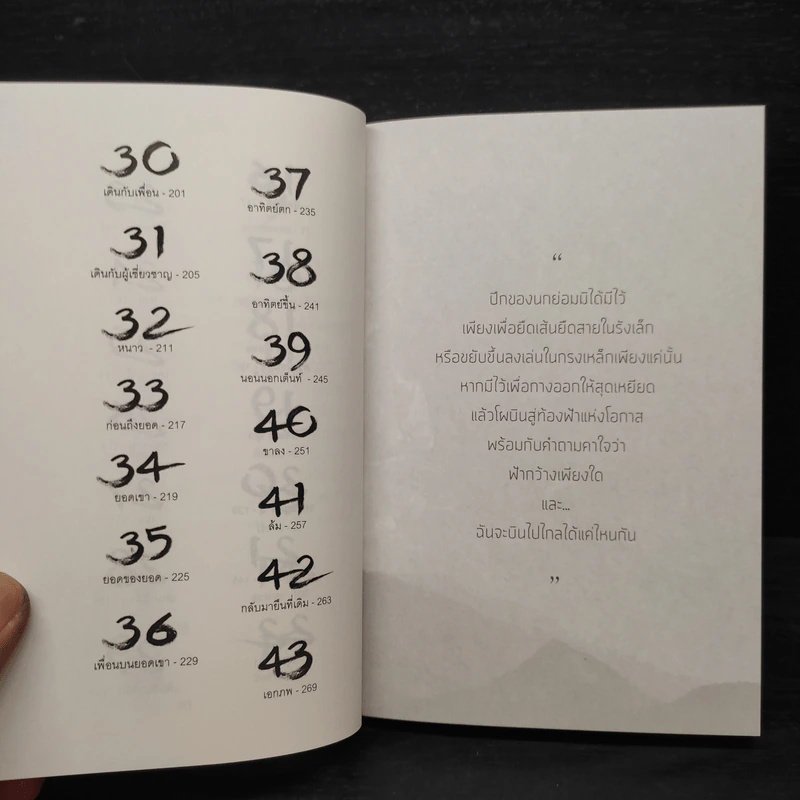 30
เดินกับเพื่อน - 201
31
เดินกับผู้เชี่ยวชาญ - 205
32
หนาว - 211
33
ก่อนถึงยอด - 217
34
ยอดเขา - 219
35
ยอดของยอด - 225
36
เพื่อนบนยอดเขา - 229
37
อาทิตย์ตก - 235
38
อาทิตย์ขึ้น - 241
39
นอนนอกเต็นท์ - 245
40
ขาลง - 251
41
ล้ม - 257
42
กลับมายืนที่เดิม - 263
43
เอกภพ - 269
“
ปีกของนกย่อมมิได้มีไว้
เพียงเพื่อยืดเส้นยืดสายในรังเล็ก
หรือขยับขึ้นลงเล่นในกรงเหล็กเพียงแค่นั้น
หากมีไว้เพื่อกางออกให้สุดเหยียด
แล้วโผบินสู่ท้องฟ้าแห่งโอกาส
พร้อมกับคำถามคาใจว่า
ฟ้ากว้างเพียงใด
และ...
ฉันจะบินไปไกลได้แค่ไหนกัน
”